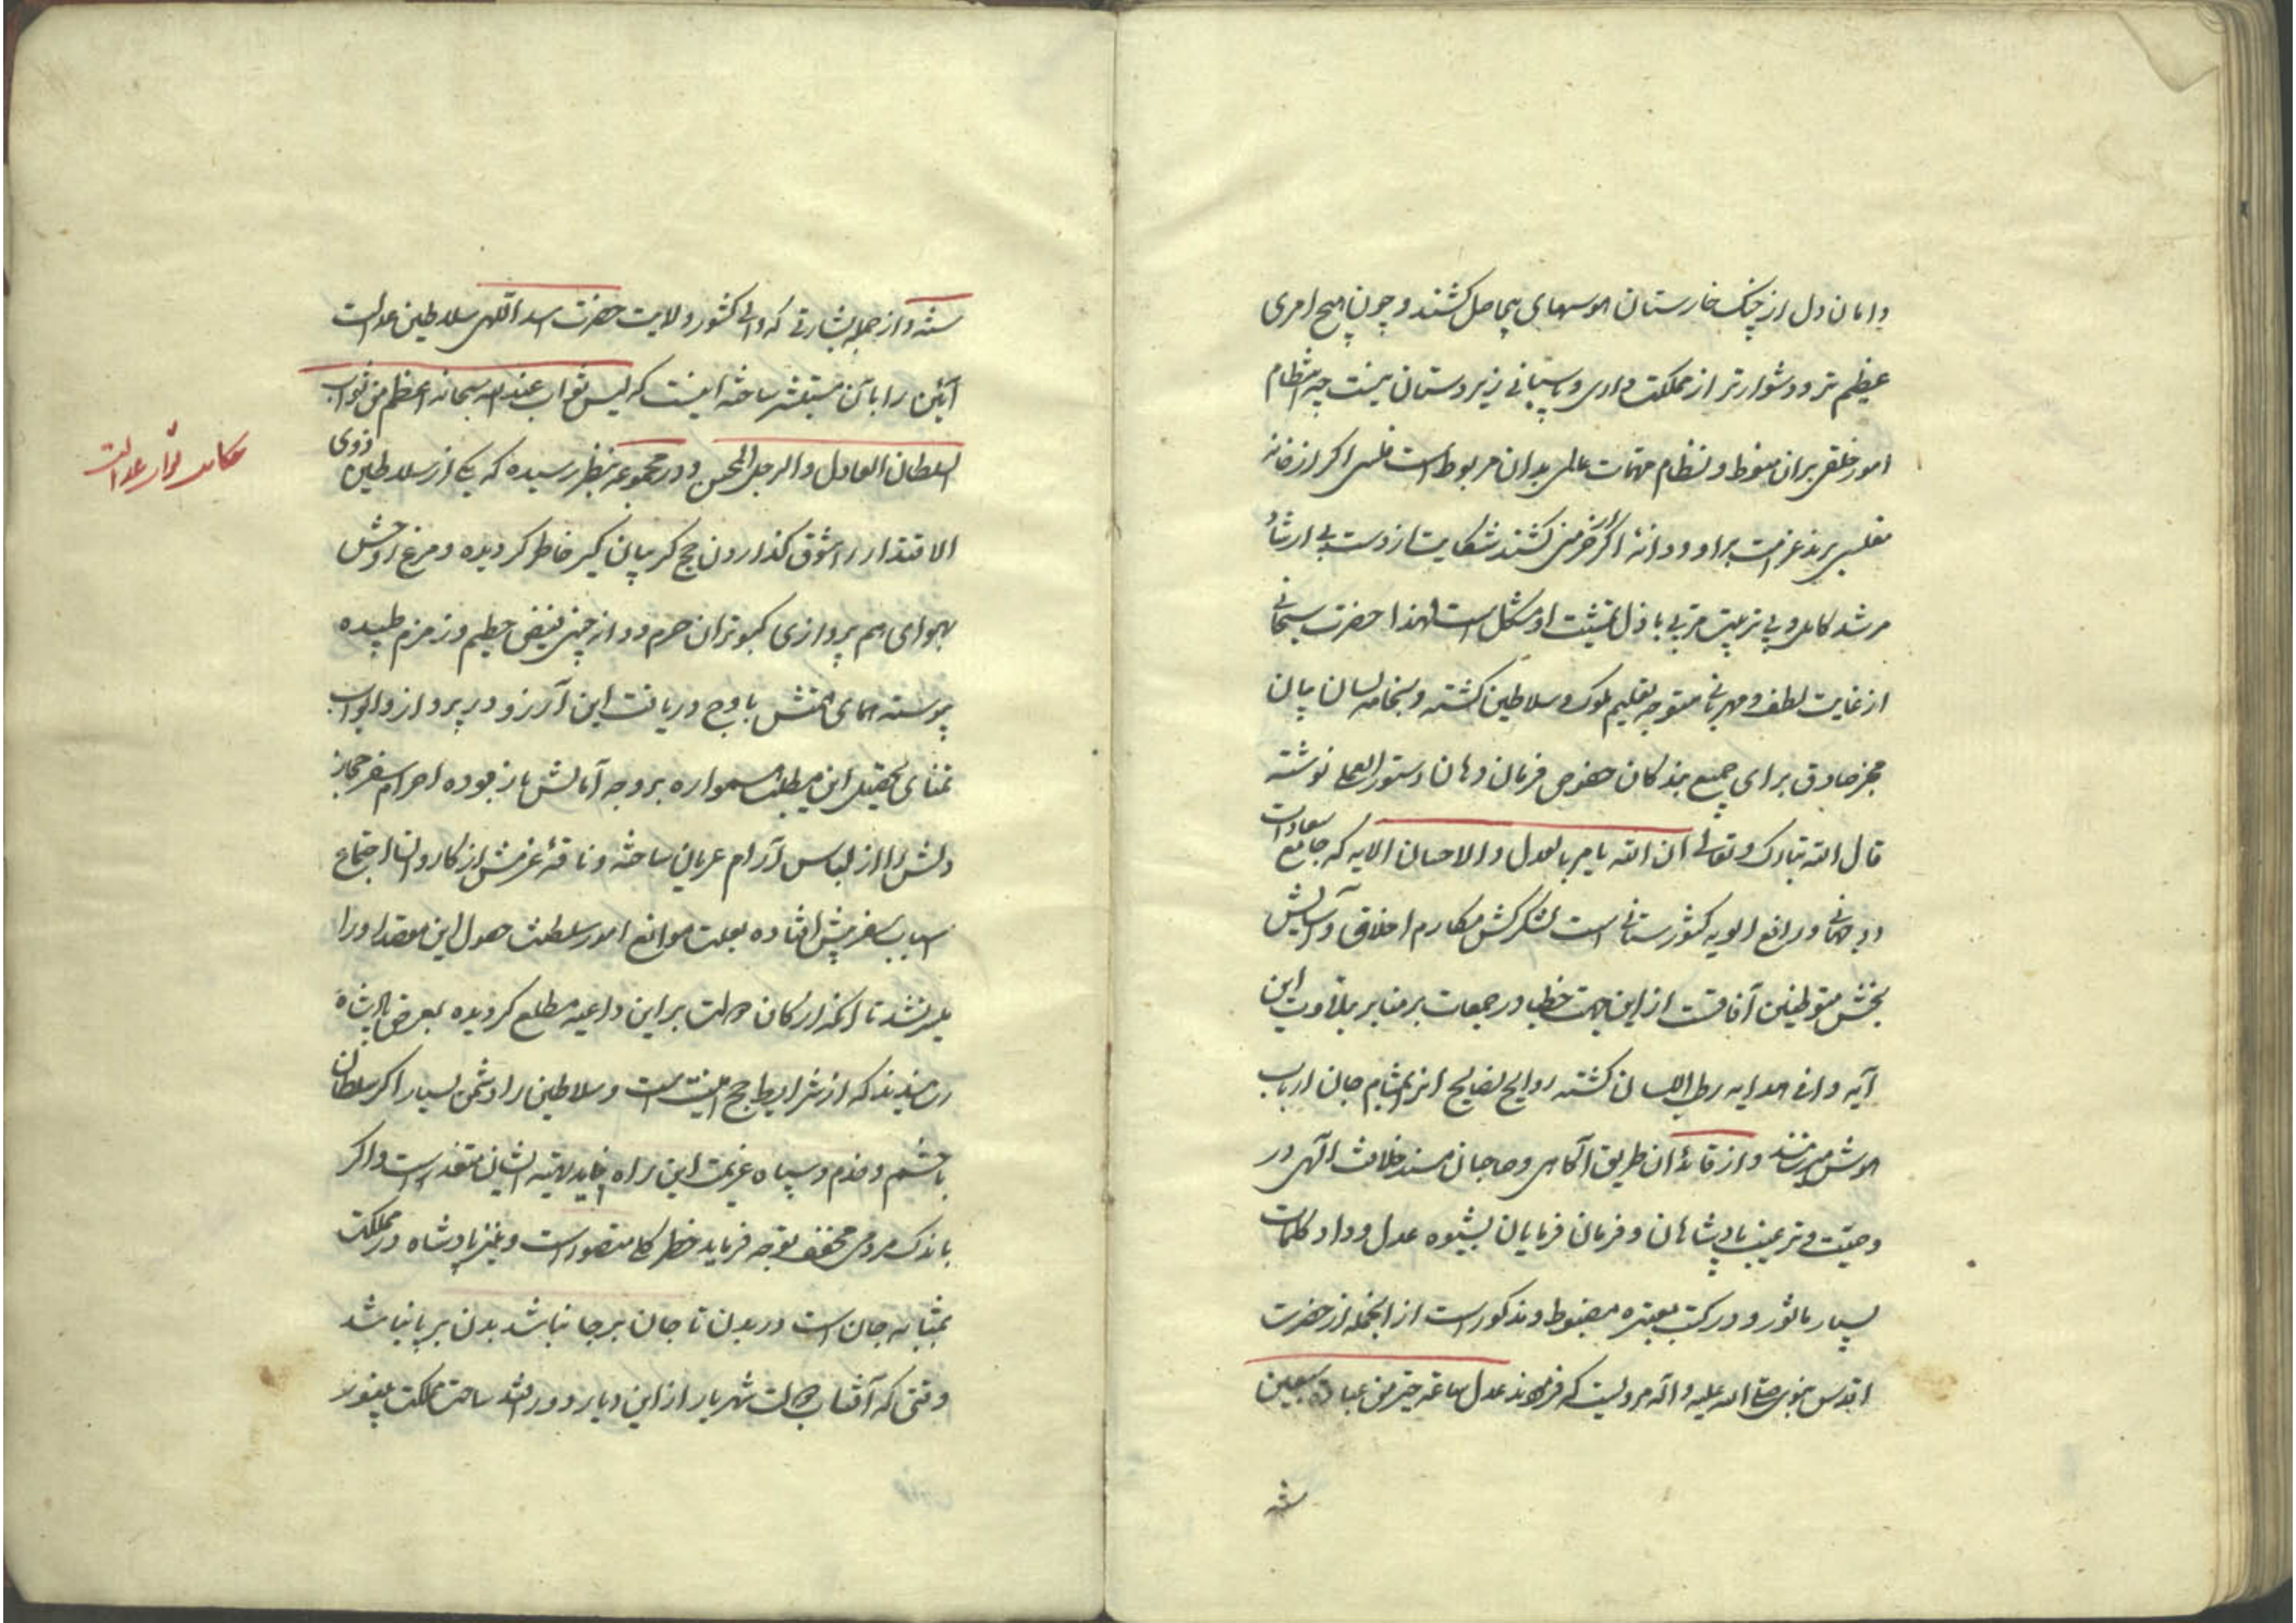 دامان دل از چنک خارستان هوسهای بیحاصل کشند و چون هیچ امری
عظیم تر و دشوارتر از مملکت داری و پاسبانی زیردستان نیست چه انتظام
امور خلقی بران منوط و نظام مهمات عالمی بدان مربوط است مفلسی اکر از خانه
مفلسی برند غرامت براو و دانهٔ اکر از خرمنی کشند شکایت از دست بی ارشاد
مرشد کامل و بی تربیت مربی باذل تمشیت او مشکل است لهذا حضرت سبحانی
از غایت لطف و مهربانی متوجه تعلیم ملوک و سلاطین کشته و بخامه لسان بیان
مخبر صادق برای جمیع بندکان خصوص فرمان دهان دستور العملی نوشته
قال الله تبارک و تعالی ان الله یامر بالعدل و الاحسان الایه که جامع سعادات
دو جهانی و رافع الویه کشورستانی است لشکرکش مکارم اخلاق و آسایش
بخش متوطنین آفاقست از این جهت خطبا در جمعات بر منابر بتلاوت این
آیه وافی هدایه رطب اللسان کشته روایح نصایح اثر بمشام جان ارباب
هوش میرسانند و از قائدان طریق آکاهی و صاحبان مسند خلافت الهی در
وصیت و ترغیب پادشاهان و فرمان فرمایان بشیوه عدل و داد کلمات
بسیار ماثور و در کتب معتبره مضبوط و مذکور است از انجمله از حضرت
اقدس نبوی صلی الله علیه و آله مرویست که فرمودند عدل ساعة خیر من عبادة سبعین
سنة
سنة و از جمله بشارتی که والی کشور ولایت حضرت اسد اللهی سلاطین عدالت
آئین را بآن مستبشر ساخته اینست که لیس ثواب عند الله سبحانه اعظم من ثواب
السلطان العادل و الرجل المحسن و در مجموعه بنظر رسیده که یکی از سلاطین ذوی
الاقتدار را شوق کذاردن حج کریبان کیر خاطر کردیده و مرغ روحش
بهوای هم پروازی کبوتران حرم و دانه چینی فیض حطیم و زمزم طپیده
پیوسته همای همتش باوج دریافت این آرزو در پرواز و ابواب
تمنای تحصیل این مطلب همواره بر وجه آمالش باز بوده احرام سفر حجاز
دلش را از لباس آرام عریان ساخته و ناقهٔ عزمش از کاروان اجتماع
اسباب سفر پیش افتاده بعلت موانع امور سلطنت حصول این مقصد او را
میسر نشد تا آنکه ارکان دولت بر این داعیه مطلع کردیده بعرض پادشاه
رسانیدند که از شرایط حج امنیت است و سلاطین را دشمن بسیار اکر سلطان
با حشم و خدم و سپاه عزیمت این راه نماید تهیه ایشان متعذر است و اکر
باندک مردمی مخفف توجه فرماید خطر کلی متصور است و نیز پادشاه در مملکت
بمثابه جان است در بدن تا جان برجا نباشد بدن برپا نباشد
وقتی که آفتاب دولت شهریار از این دیار دور افتد ساحت مملکت بی نور